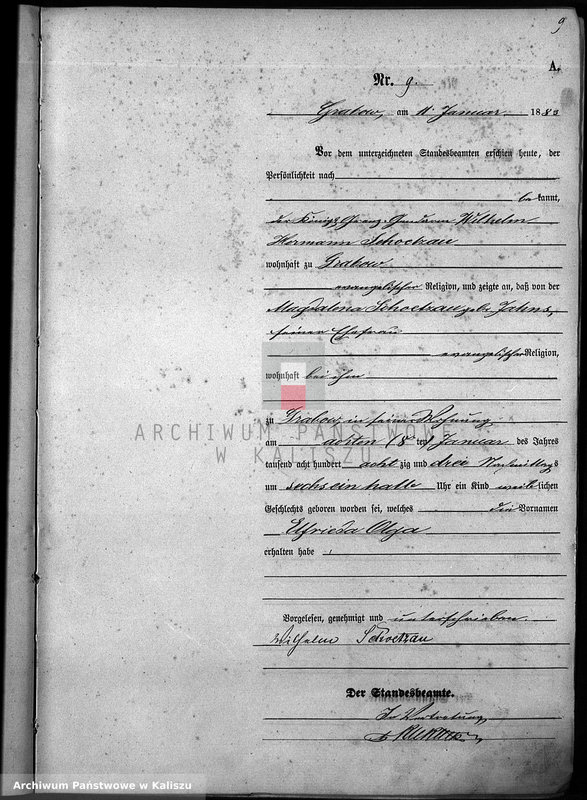 9
A.
Nr. 9.
Grabow, am 11 Januar 1883
Vor dem unterzeichneten Standesbeamten erschien heute, der
Persönlichkeit nach
bekannt,
der Königl. Grenz-Gendarm Wilhelm
Hermann Schoetzau
wohnhaft zu Grabow
evangelischer Religion, und zeigte an, daß von der
Magdalena Schoetzau geb. Jahns,
seiner Ehefrau
evangelischer Religion,
wohnhaft bei ihm
zu Grabow in seiner Wohnung
am achten (8ten) Januar des Jahres
tausend acht hundert achtzig und drei Vormittags
um sechs ein halb Uhr ein Kind weiblichen
Geschlechts geboren worden sei, welches die Vornamen
Elfrieda Olga
erhalten habe
Vorgelesen, genehmigt und unterschrieben.
Wilhelm Schoetzau
Der Standesbeamte.
In Vertretung
ARCHIWUM PAŃSTWOWE
W KALISZU
Archiwum Państwowe w Kaliszu